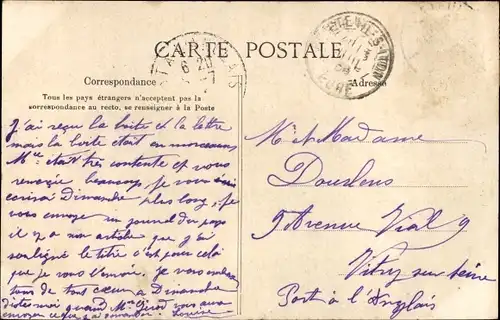 CARTE POSTALE
Correspondance
Adresse
Tous les pays étrangers n'acceptent pas la
correspondance au recto, se renseigner à la Poste
J'ai reçu la boite et la lettre
mais la boite était en morceaux
Mme était très contente et vous
remercie beaucoup je vous
écrirai Dimanche plus long, je
vous envoye un journal du pays
il y a un article que j'ai
souligné le titre c'est pour cela
que je vous l'envoie. je vous embrasse
tous de tout cœur à Dimanche
dites moi quand Mme vous aura
envoyer ce que j'ai demandé. Louise
M. et Madame
Dourlens
9 Avenue Vial 9
Vitry sur Seine
Port à l'Anglais